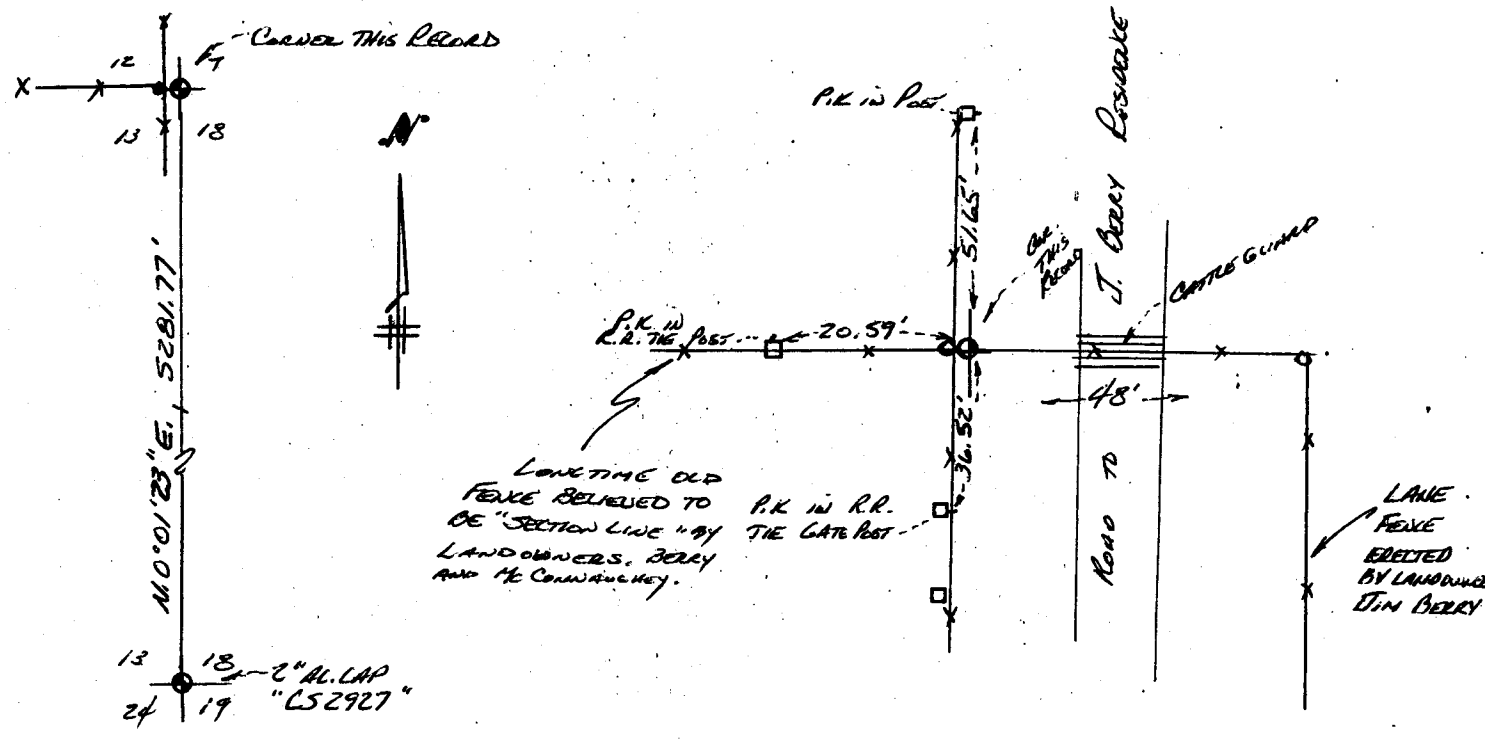 CORNER THIS RECORD
12
7
13
18
N
N.0°01'23"E., 5281.77'
13
18
24
19
2" AL. CAP
"LS 2927"
P.K IN POST
51.65'
COR.
THIS
RECORD
ROAD TO J. BERRY RESIDENCE
CATTLE GUARD
P.K. IN
R.R. TIE POST
20.59'
48'
36.52'
LONGTIME OLD
FENCE BELIEVED TO
BE "SECTION LINE" BY
LANDOWNERS, BERRY
AND McCONNAUGHEY.
P.K IN R.R.
TIE GATE POST
LANE
FENCE
ERECTED
BY LANDOWNE
JIM BERRY